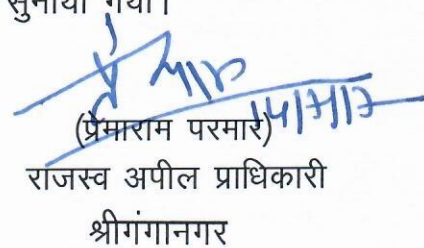 सुनाया गया।
14/7/17
(प्रेमाराम परमार)
राजस्व अपील प्राधिकारी
श्रीगंगानगर